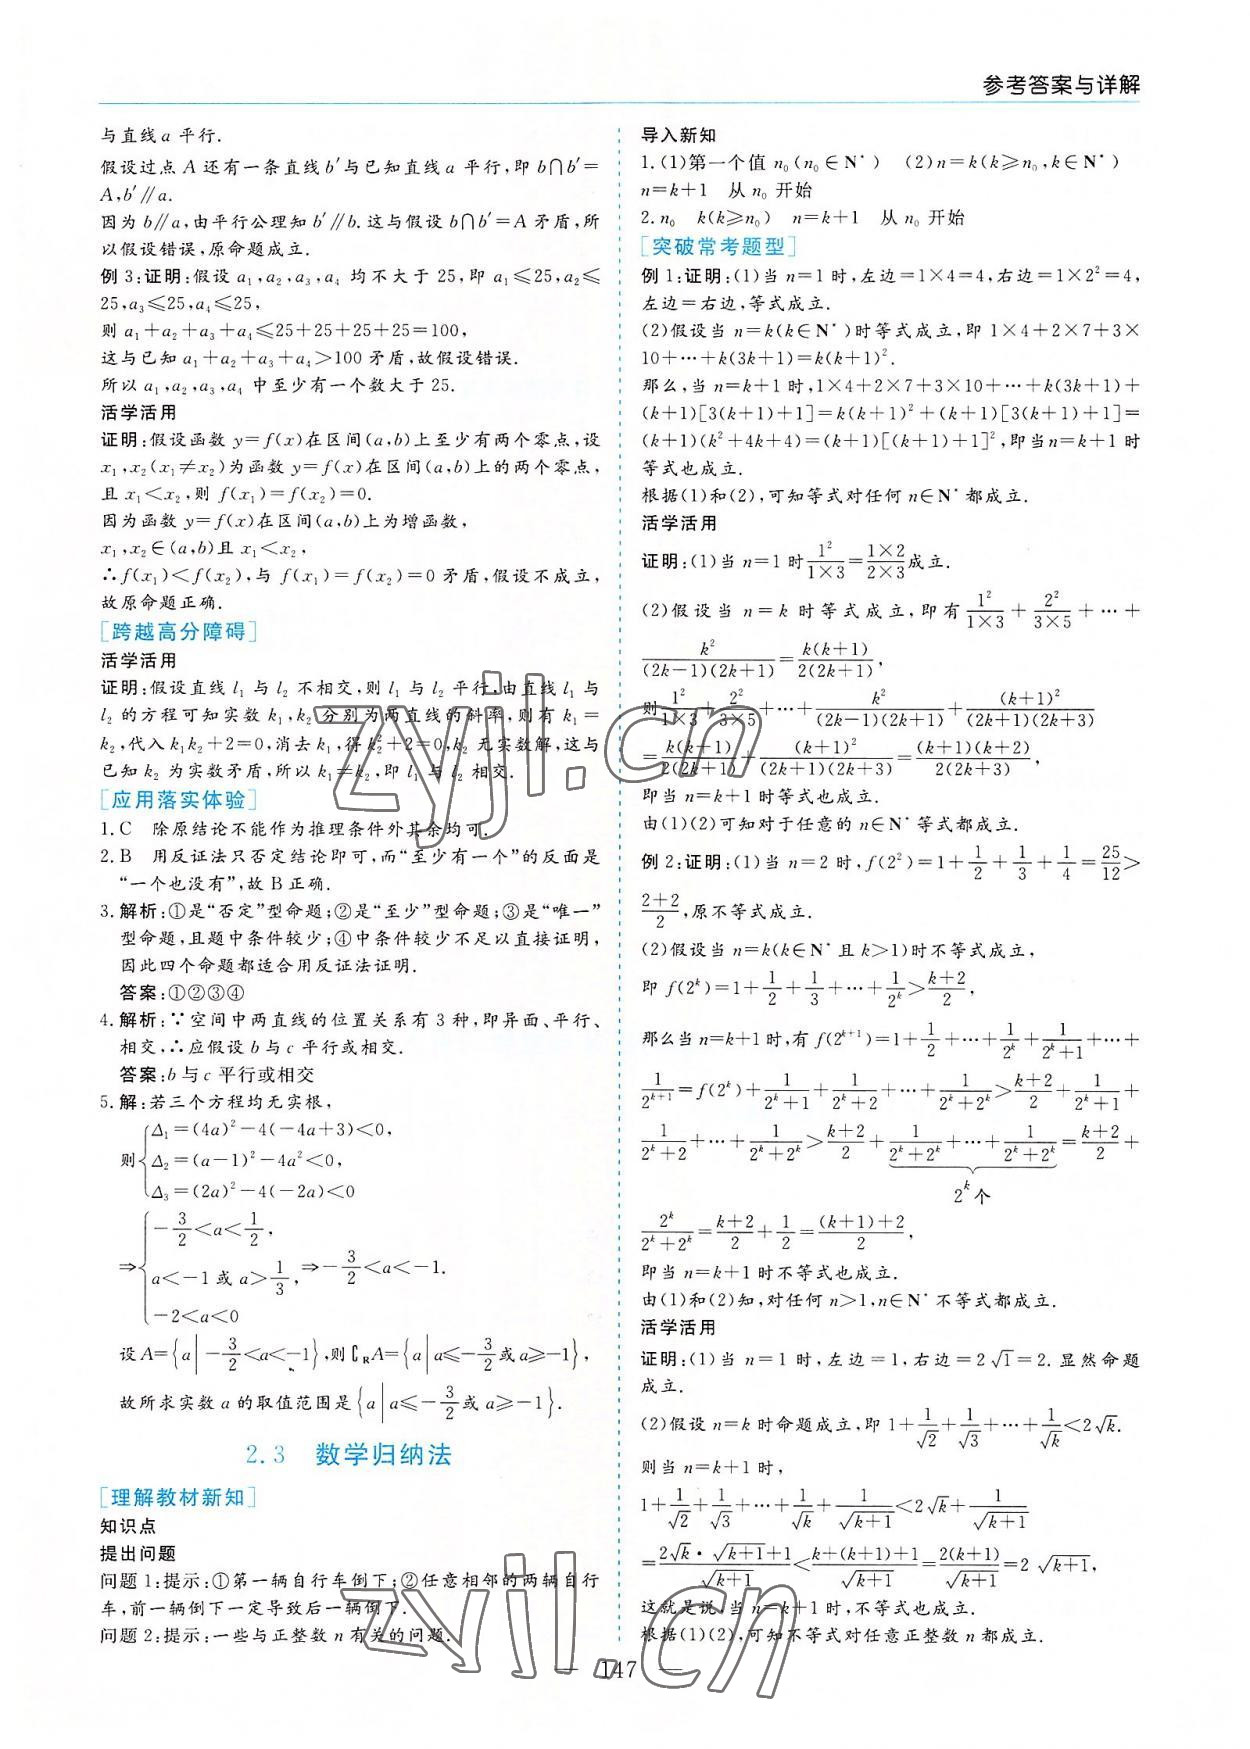 参考答案与详解
与直线a平行.
假设过点A还有一条直线b′与已知直线a平行,即b∩b′=
A,b′∥a.
因为b∥a,由平行公理知b′∥b.这与假设b∩b′=A矛盾,所
以假设错误,原命题成立.
例3:证明:假设a₁,a₂,a₃,a₄均不大于25,即a₁≤25,a₂≤
25,a₃≤25,a₄≤25,
则a₁+a₂+a₃+a₄≤25+25+25+25=100,
这与已知a₁+a₂+a₃+a₄>100矛盾,故假设错误.
所以a₁,a₂,a₃,a₄中至少有一个数大于25.
活学活用
证明:假设函数y=f(x)在区间(a,b)上至少有两个零点,设
x₁,x₂(x₁≠x₂)为函数y=f(x)在区间(a,b)上的两个零点,
且x₁<x₂,则f(x₁)=f(x₂)=0.
因为函数y=f(x)在区间(a,b)上为增函数,
x₁,x₂∈(a,b)且x₁<x₂,
∴f(x₁)<f(x₂),与f(x₁)=f(x₂)=0矛盾,假设不成立,
故原命题正确.
[跨越高分障碍]
活学活用
证明:假设直线l₁与l₂不相交,则l₁与l₂平行,由直线l₁与
l₂的方程可知实数k₁,k₂分别为两直线的斜率,则有k₁=
k₂,代入k₁k₂+2=0,消去k₁,得k₂²+2=0,k₂无实数解,这与
已知k₂为实数矛盾,所以k₁≠k₂,即l₁与l₂相交.
[应用落实体验]
1.C 除原结论不能作为推理条件外其余均可.
2.B 用反证法只否定结论即可,而“至少有一个”的反面是
“一个也没有”,故B正确.
3.解析:①是“否定”型命题;②是“至少”型命题;③是“唯一”
型命题,且题中条件较少;④中条件较少不足以直接证明,
因此四个命题都适合用反证法证明.
答案:①②③④
4.解析:∵空间中两直线的位置关系有3种,即异面、平行、
相交,∴应假设b与c平行或相交.
答案:b与c平行或相交
5.解:若三个方程均无实根,
则{Δ₁=(4a)²-4(-4a+3)<0,
Δ₂=(a-1)²-4a²<0,
Δ₃=(2a)²-4(-2a)<0
⇒{-3/2<a<1/2,
a<-1或a>1/3,⇒-3/2<a<-1.
-2<a<0
设A={a|-3/2<a<-1},则∁RA={a|a≤-3/2或a≥-1},
故所求实数a的取值范围是{a|a≤-3/2或a≥-1}.
2.3 数学归纳法
[理解教材新知]
知识点
提出问题
问题1:提示:①第一辆自行车倒下;②任意相邻的两辆自行
车,前一辆倒下一定导致后一辆倒下.
问题2:提示:一些与正整数n有关的问题.
导入新知
1.(1)第一个值n₀(n₀∈N*) (2)n=k(k≥n₀,k∈N*)
n=k+1 从n₀开始
2.n₀ k(k≥n₀) n=k+1 从n₀开始
[突破常考题型]
例1:证明:(1)当n=1时,左边=1×4=4,右边=1×2²=4,
左边=右边,等式成立.
(2)假设当n=k(k∈N*)时等式成立,即1×4+2×7+3×
10+…+k(3k+1)=k(k+1)².
那么,当n=k+1时,1×4+2×7+3×10+…+k(3k+1)+
(k+1)[3(k+1)+1]=k(k+1)²+(k+1)[3(k+1)+1]=
(k+1)(k²+4k+4)=(k+1)[(k+1)+1]²,即当n=k+1时
等式也成立.
根据(1)和(2),可知等式对任何n∈N*都成立.
活学活用
证明:(1)当n=1时1²/(1×3)=(1×2)/(2×3)成立.
(2)假设当n=k时等式成立,即有1²/(1×3)+2²/(3×5)+…+
k²/((2k-1)(2k+1))=k(k+1)/(2(2k+1)),
则1²/(1×3)+2²/(3×5)+…+k²/((2k-1)(2k+1))+(k+1)²/((2k+1)(2k+3))
=k(k+1)/(2(2k+1))+(k+1)²/((2k+1)(2k+3))=(k+1)(k+2)/(2(2k+3)),
即当n=k+1时等式也成立.
由(1)(2)可知对于任意的n∈N*等式都成立.
例2:证明:(1)当n=2时,f(2²)=1+1/2+1/3+1/4=25/12>
(2+2)/2,原不等式成立.
(2)假设当n=k(k∈N*且k>1)时不等式成立,
即f(2^k)=1+1/2+1/3+…+1/2^k>(k+2)/2,
那么当n=k+1时,有f(2^(k+1))=1+1/2+…+1/2^k+1/(2^k+1)+…+
1/2^(k+1)=f(2^k)+1/(2^k+1)+1/(2^k+2)+…+1/(2^k+2^k)>(k+2)/2+1/(2^k+1)+
1/(2^k+2)+…+1/(2^k+2^k)>(k+2)/2+1/(2^k+2^k)+…+1/(2^k+2^k)=(k+2)/2+
2^k个
2^k/(2^k+2^k)=(k+2)/2+1/2=((k+1)+2)/2,
即当n=k+1时不等式也成立.
由(1)和(2)知,对任何n>1,n∈N*不等式都成立.
活学活用
证明:(1)当n=1时,左边=1,右边=2√1=2.显然命题
成立.
(2)假设n=k时命题成立,即1+1/√2+1/√3+…+1/√k<2√k.
则当n=k+1时,
1+1/√2+1/√3+…+1/√k+1/√(k+1)<2√k+1/√(k+1)
=(2√k·√(k+1)+1)/√(k+1)<(k+(k+1)+1)/√(k+1)=2(k+1)/√(k+1)=2√(k+1),
这就是说,当n=k+1时,不等式也成立.
根据(1)(2),可知不等式对任意正整数n都成立.
— 147 —
zyjl.cn
zyjl.cn